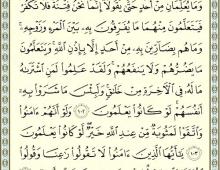 وَمَا يُعَلِّمَانِ مِنْ أَحَدٍ حَتَّىٰ يَقُولَا إِنَّمَا نَحْنُ فِتْنَةٌ فَلَا تَكْفُرْ
فَيَتَعَلَّمُونَ مِنْهُمَا مَا يُفَرِّقُونَ بِهِۦ بَيْنَ ٱلْمَرْءِ وَزَوْجِهِۦ
وَمَا هُم بِضَآرِّينَ بِهِۦ مِنْ أَحَدٍ إِلَّا بِإِذْنِ ٱللَّهِ وَيَتَعَلَّمُونَ
مَا يَضُرُّهُمْ وَلَا يَنفَعُهُمْ وَلَقَدْ عَلِمُوا۟ لَمَنِ ٱشْتَرَىٰهُ
مَا لَهُۥ فِى ٱلْءَاخِرَةِ مِنْ خَلَٰقٍ وَلَبِئْسَ مَا شَرَوْا۟ بِهِۦٓ
أَنفُسَهُمْ لَوْ كَانُوا۟ يَعْلَمُونَ ١٠٢ وَلَوْ أَنَّهُمْ ءَامَنُوا۟
وَٱتَّقَوْا۟ لَمَثُوبَةٌ مِّنْ عِندِ ٱللَّهِ خَيْرٌ لَّوْ كَانُوا۟ يَعْلَمُونَ
١٠٣ يَٰٓأَيُّهَا ٱلَّذِينَ ءَامَنُوا۟ لَا تَقُولُوا۟ رَٰعِنَا وَقُولُوا۟